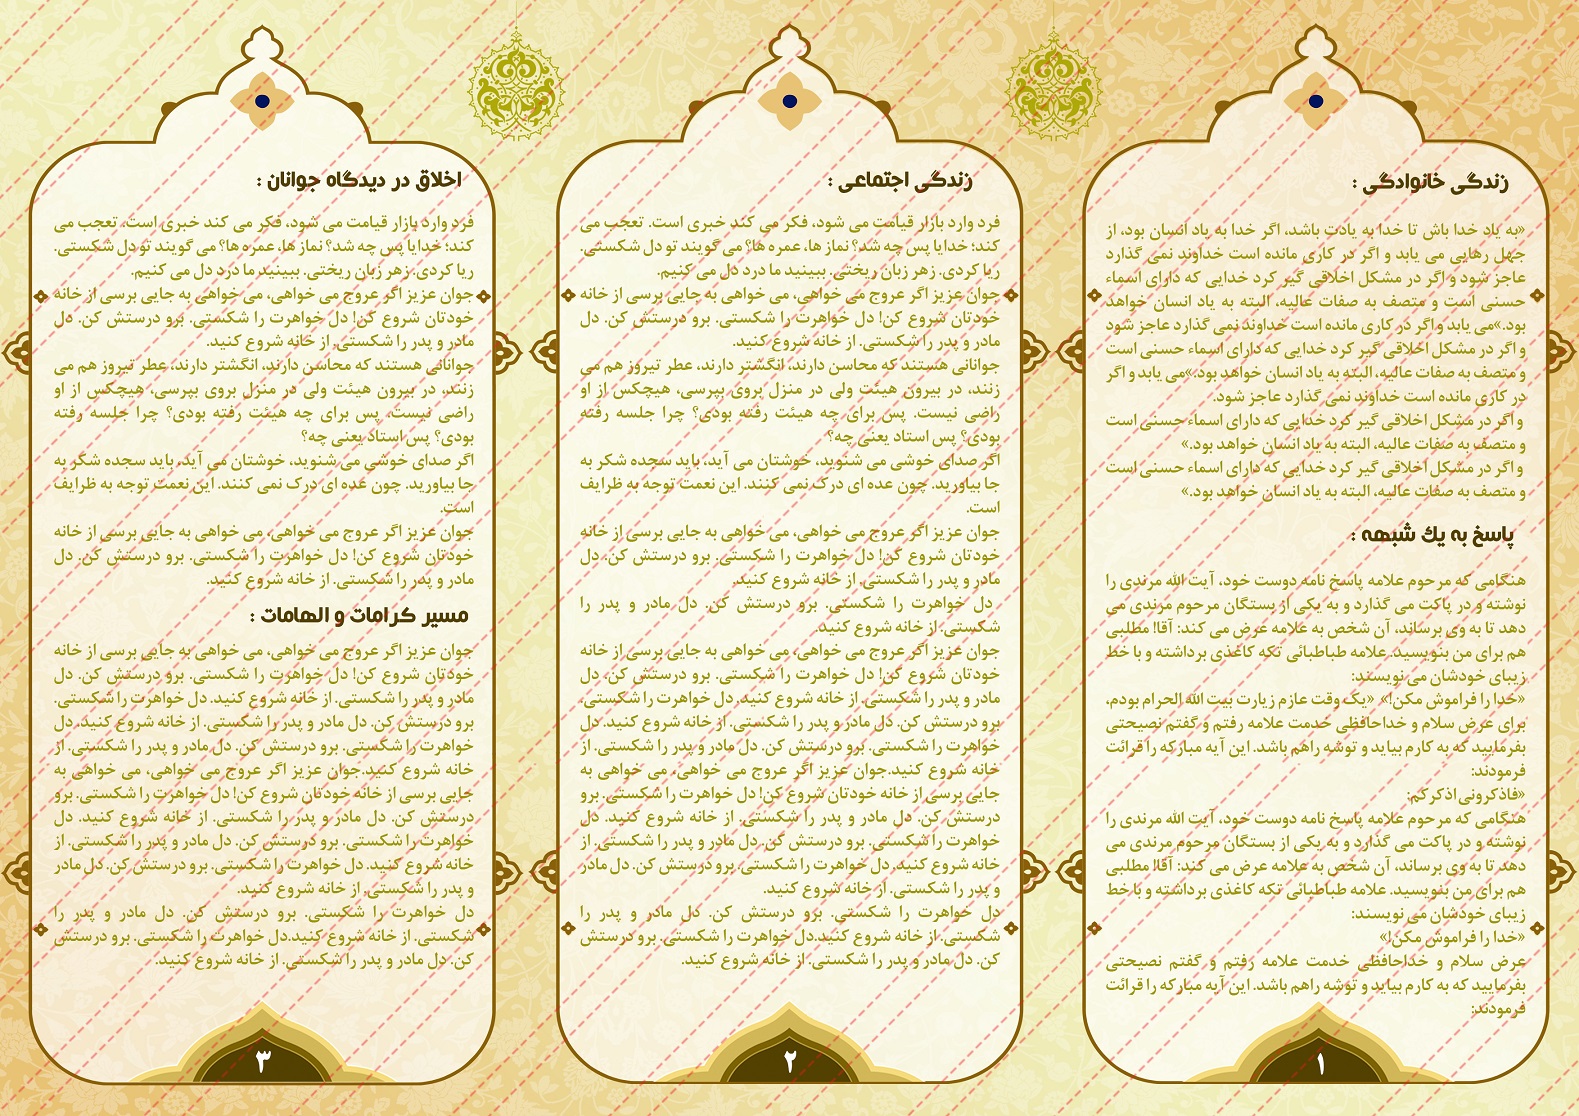 زندگی خانوادگی :
«به یاد خدا باش تا خدا به یادت باشد، اگر خدا به یاد انسان بود، از
جهل رهایی می یابد و اگر در کاری مانده است خداوند نمی گذارد
عاجز شود و اگر در مشکل اخلاقی گیر کرد خدایی که دارای اسماء
حسنی است و متصف به صفات عالیه، البته به یاد انسان خواهد
بود.»می یابد و اگر در کاری مانده است خداوند نمی گذارد عاجز شود
و اگر در مشکل اخلاقی گیر کرد خدایی که دارای اسماء حسنی است
و متصف به صفات عالیه، البته به یاد انسان خواهد بود.»می یابد و اگر
در کاری مانده است خداوند نمی گذارد عاجز شود.
و اگر در مشکل اخلاقی گیر کرد خدایی که دارای اسماء حسنی است
و متصف به صفات عالیه، البته به یاد انسان خواهد بود.»
و اگر در مشکل اخلاقی گیر کرد خدایی که دارای اسماء حسنی است
و متصف به صفات عالیه، البته به یاد انسان خواهد بود.»
پاسخ به یك شبهه :
هنگامی که مرحوم علامه پاسخ نامه دوست خود، آیت الله مرندی را
نوشته و در پاکت می گذارد و به یکی از بستگان مرحوم مرندی می
دهد تا به وی برساند، آن شخص به علامه عرض می کند: آقا! مطلبی
هم برای من بنویسید. علامه طباطبائی تکه کاغذی برداشته و با خط
زیبای خودشان می نویسند:
«خدا را فراموش مکن!» «یک وقت عازم زیارت بیت الله الحرام بودم،
برای عرض سلام و خداحافظی خدمت علامه رفتم و گفتم نصیحتی
بفرمایید که به کارم بیاید و توشه راهم باشد. این آیه مبارکه را قرائت
فرمودند:
«فاذکرونی اذکرکم:
هنگامی که مرحوم علامه پاسخ نامه دوست خود، آیت الله مرندی را
نوشته و در پاکت می گذارد و به یکی از بستگان مرحوم مرندی می
دهد تا به وی برساند، آن شخص به علامه عرض می کند: آقا! مطلبی
هم برای من بنویسید. علامه طباطبائی تکه کاغذی برداشته و با خط
زیبای خودشان می نویسند:
«خدا را فراموش مکن!»
عرض سلام و خداحافظی خدمت علامه رفتم و گفتم نصیحتی
بفرمایید که به کارم بیاید و توشه راهم باشد. این آیه مبارکه را قرائت
فرمودند:
۱
زندگی اجتماعی :
فرد وارد بازار قیامت می شود، فکر می کند خبری است. تعجب می
کند؛ خدایا پس چه شد؟ نماز ها، عمره ها؟ می گویند تو دل شکستی.
ریا کردی. زهر زبان ریختی. ببینید ما درد دل می کنیم.
جوان عزیز اگر عروج می خواهی، می خواهی به جایی برسی از خانه
خودتان شروع کن! دل خواهرت را شکستی. برو درستش کن. دل
مادر و پدر را شکستی. از خانه شروع کنید.
جوانانی هستند که محاسن دارند، انگشتر دارند، عطر تیروز هم می
زنند، در بیرون هیئت ولی در منزل بروی بپرسی، هیچکس از او
راضی نیست. پس برای چه هیئت رفته بودی؟ چرا جلسه رفته
بودی؟ پس استاد یعنی چه؟
اگر صدای خوشی می شنوید، خوشتان می آید، باید سجده شکر به
جا بیاورید. چون عده ای درک نمی کنند. این نعمت توجه به ظرایف
است.
جوان عزیز اگر عروج می خواهی، می خواهی به جایی برسی از خانه
خودتان شروع کن! دل خواهرت را شکستی. برو درستش کن. دل
مادر و پدر را شکستی. از خانه شروع کنید.
دل خواهرت را شکستی. برو درستش کن. دل مادر و پدر را
شکستی. از خانه شروع کنید.
جوان عزیز اگر عروج می خواهی، می خواهی به جایی برسی از خانه
خودتان شروع کن! دل خواهرت را شکستی. برو درستش کن. دل
مادر و پدر را شکستی. از خانه شروع کنید.دل خواهرت را شکستی.
برو درستش کن. دل مادر و پدر را شکستی. از خانه شروع کنید. دل
خواهرت را شکستی. برو درستش کن. دل مادر و پدر را شکستی. از
خانه شروع کنید.جوان عزیز اگر عروج می خواهی، می خواهی به
جایی برسی از خانه خودتان شروع کن! دل خواهرت را شکستی. برو
درستش کن. دل مادر و پدر را شکستی. از خانه شروع کنید. دل
خواهرت را شکستی. برو درستش کن. دل مادر و پدر را شکستی. از
خانه شروع کنید.دل خواهرت را شکستی. برو درستش کن. دل مادر
و پدر را شکستی. از خانه شروع کنید.
دل خواهرت را شکستی. برو درستش کن. دل مادر و پدر را
شکستی. از خانه شروع کنید.دل خواهرت را شکستی. برو درستش
کن. دل مادر و پدر را شکستی. از خانه شروع کنید.
۲
اخلاق در دیدگاه جوانان :
فرد وارد بازار قیامت می شود، فکر می کند خبری است. تعجب می
کند؛ خدایا پس چه شد؟ نماز ها، عمره ها؟ می گویند تو دل شکستی.
ریا کردی. زهر زبان ریختی. ببینید ما درد دل می کنیم.
جوان عزیز اگر عروج می خواهی، می خواهی به جایی برسی از خانه
خودتان شروع کن! دل خواهرت را شکستی. برو درستش کن. دل
مادر و پدر را شکستی. از خانه شروع کنید.
جوانانی هستند که محاسن دارند، انگشتر دارند، عطر تیروز هم می
زنند، در بیرون هیئت ولی در منزل بروی بپرسی، هیچکس از او
راضی نیست. پس برای چه هیئت رفته بودی؟ چرا جلسه رفته
بودی؟ پس استاد یعنی چه؟
اگر صدای خوشی می شنوید، خوشتان می آید، باید سجده شکر به
جا بیاورید. چون عده ای درک نمی کنند. این نعمت توجه به ظرایف
است.
جوان عزیز اگر عروج می خواهی، می خواهی به جایی برسی از خانه
خودتان شروع کن! دل خواهرت را شکستی. برو درستش کن. دل
مادر و پدر را شکستی. از خانه شروع کنید.
مسیر کرامات و الهامات :
جوان عزیز اگر عروج می خواهی، می خواهی به جایی برسی از خانه
خودتان شروع کن! دل خواهرت را شکستی. برو درستش کن. دل
مادر و پدر را شکستی. از خانه شروع کنید. دل خواهرت را شکستی.
برو درستش کن. دل مادر و پدر را شکستی. از خانه شروع کنید. دل
خواهرت را شکستی. برو درستش کن. دل مادر و پدر را شکستی. از
خانه شروع کنید.جوان عزیز اگر عروج می خواهی، می خواهی به
جایی برسی از خانه خودتان شروع کن! دل خواهرت را شکستی. برو
درستش کن. دل مادر و پدر را شکستی. از خانه شروع کنید. دل
خواهرت را شکستی. برو درستش کن. دل مادر و پدر را شکستی. از
خانه شروع کنید.دل خواهرت را شکستی. برو درستش کن. دل مادر
و پدر را شکستی. از خانه شروع کنید.
دل خواهرت را شکستی. برو درستش کن. دل مادر و پدر را
شکستی. از خانه شروع کنید.دل خواهرت را شکستی. برو درستش
کن. دل مادر و پدر را شکستی. از خانه شروع کنید.
۳